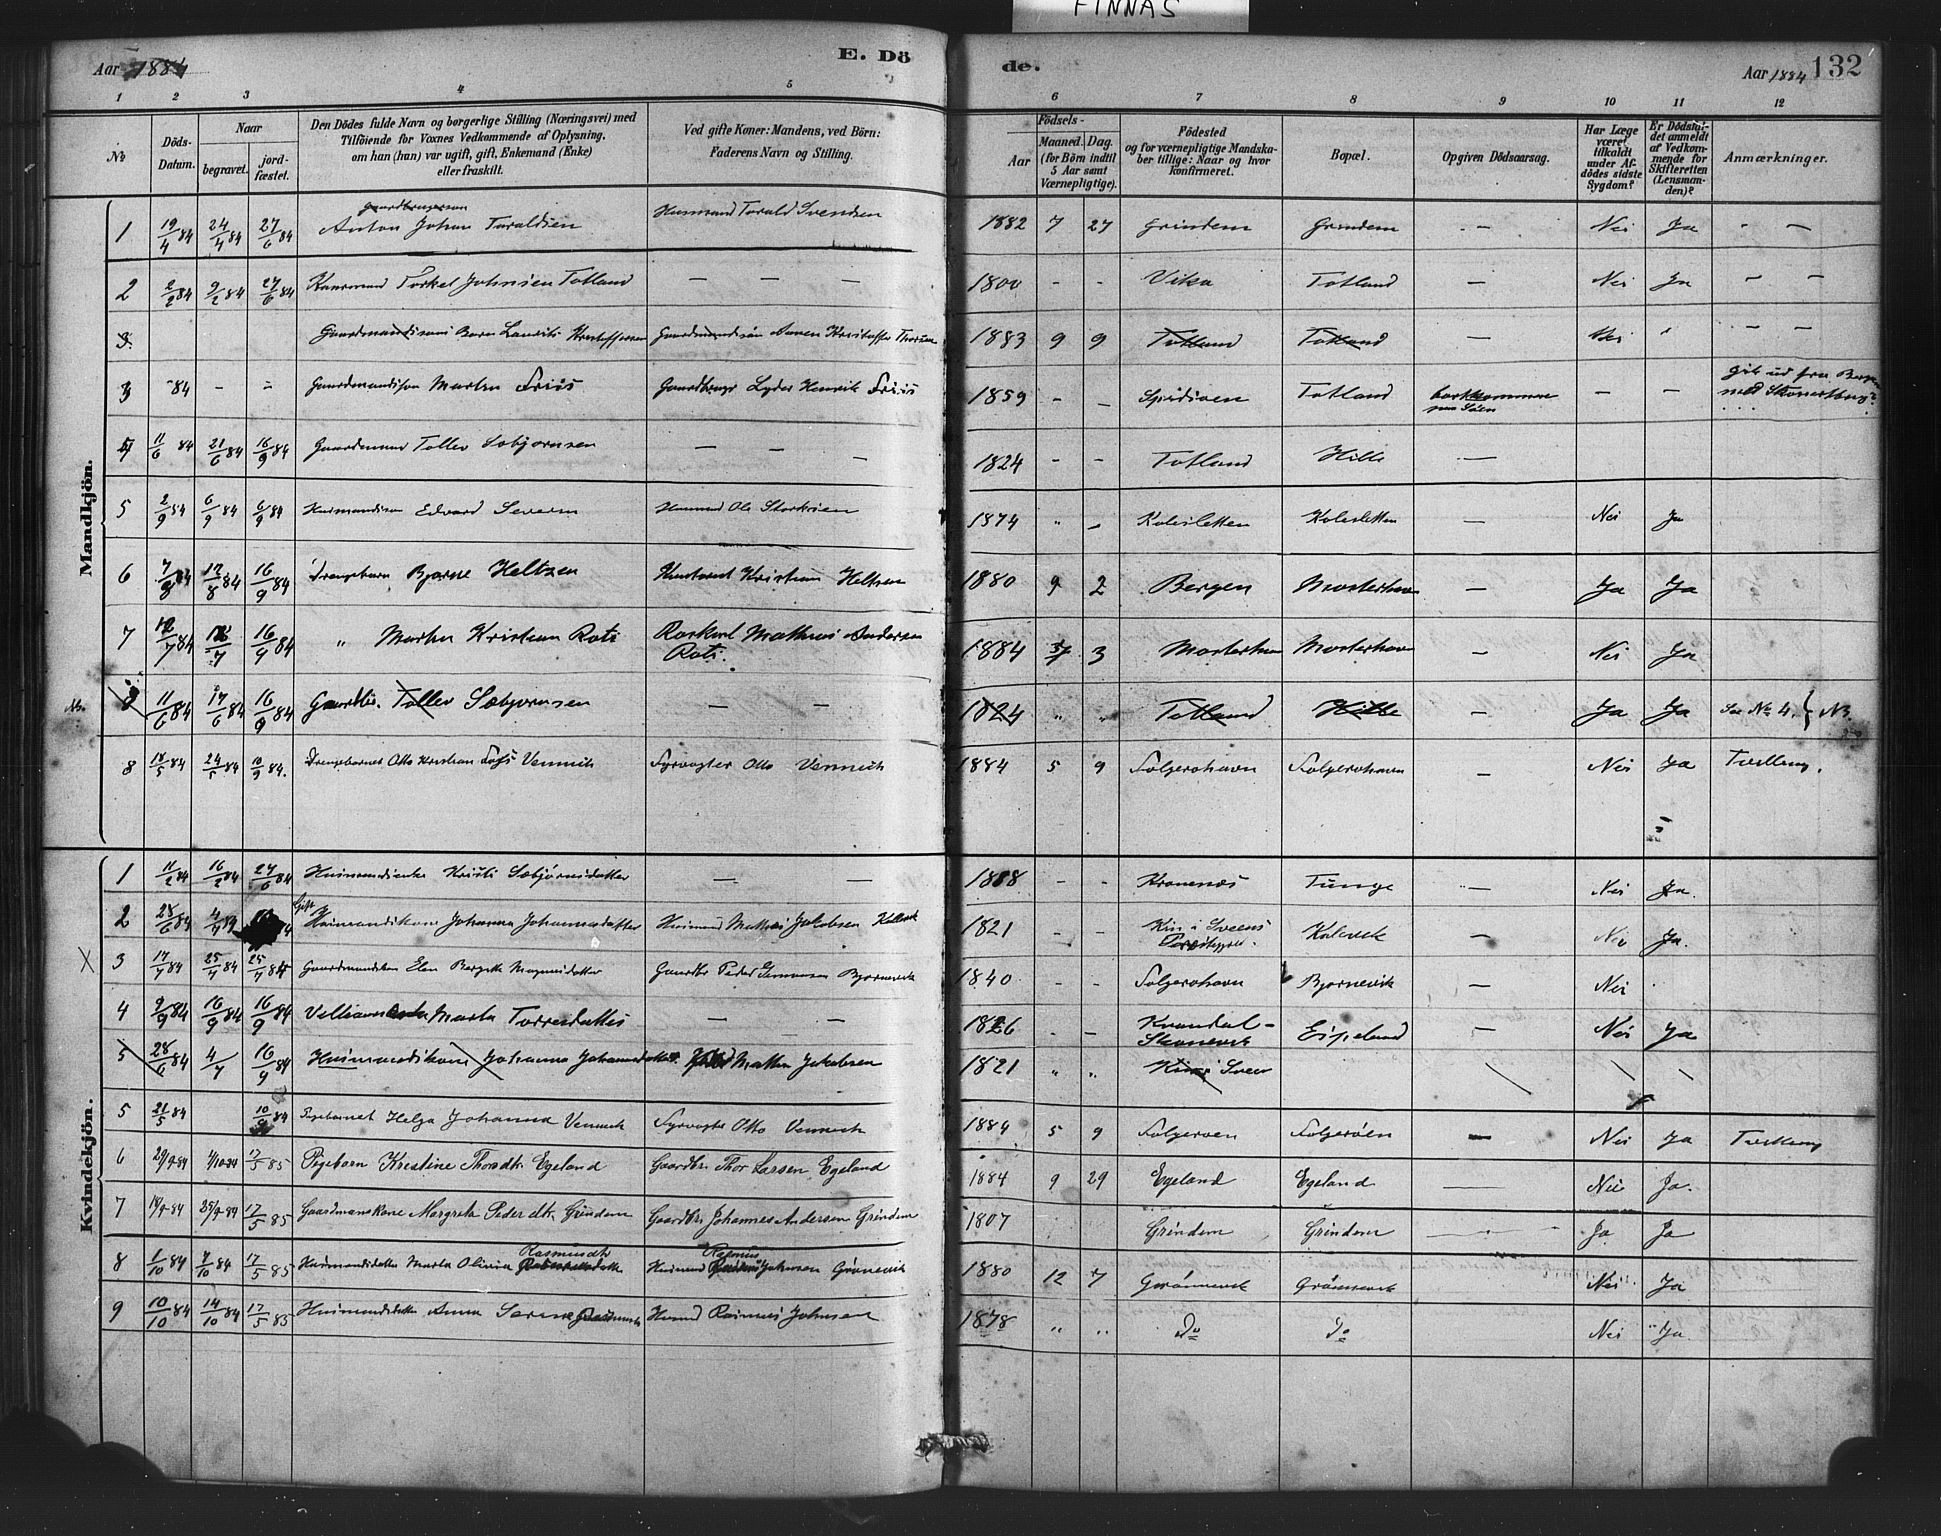 FINNÅS
Aar 1884
E. Dö
de.
Aar 1884
132
1 2 3 4 5 6 7 8 9 10 11 12
No
Döds-Datum.
Naar begravet. jordfæstet.
Den Dödes fulde Navn og borgerlige Stilling (Næringsvei) med
Tilföiende for Voxnes Vedkommende af Oplysning,
om han (hun) var ugift, gift, Enkemand (Enke)
eller fraskilt.
Ved gifte Koner: Mandens, ved Börn:
Faderens Navn og Stilling.
Födsels-
Aar
Maaned. Dag
(for Börn indtil
5 Aar samt
Værnepligtige).
Födested
og for værnepligtige Mandska-
ber tillige: Naar og hvor
konfirmeret.
Bopæl.
Opgiven Dödsaarsag.
Har Læge
været
tilkaldt
under Af-
dödes sidste
Sygdom?
Er Dödsfal-
det anmeldt
af Vedkom-
mende for
Skifteretten
(Lensman-
den)?
Anmærkninger.
Mandkjön.
1 19/4 84 24/4 84 27/6 84 Anton Johan Taraldsen Husmand Tarald Svendsen 1882 7 27 Grindem Grindem — Nei Ja - —
2 2/2 84 9/2 84 27/6 84 Torkel Johnsen Totland — — — 1800 - - Vika Totland — Nei Ja — —
3. Laurits Kristoffersen 1883 9 9 Totland Totland — Nei — —
3 84 - - Gaardmandsøn Martin Friis Gaardbrugr Lyder Henrik Friis 1859 - - Totland — — med
4 11/6 84 21/6 84 16/9 84 Gaardmand Tollev Sæbjørnsen — — — 1824 - - Totland Hille —
5 2/9 84 6/9 84 6/9 84 Husmandsøn Edvard Severin Husmand Ole Storksen 1874 " - Kolesletten Kolesletten — Nei Ja
6 7/8 84 12/8 84 16/9 84 Drengebarn Bjarne Heltzen Kristian Heltzen 1880 9 2 Bergen Mosterhavn — Ja Ja
7 12/7 84 16/9 84 " Kristian Rots Mathias Andersen
Rots. 1884 3 Mosterhavn Mosterhavn — Nei Ja
No. 8 11/6 84 17/6 84 16/9 84 Gaardbr. Tollev Sæbjørnsen — — 1824 " " Totland Hille — Ja Ja Se No 4. } No.
8 18/5 84 24/5 84 10/9 84. Drengebarnet Otto Kristian Vennech Fyrvogter Otto Vennech 1884 5 9 Folgerøhavn Folgerøhavn — Nei Ja Tvilling.
Kvindekjön.
1 11/2 84 16/2 84 27/6 84 Husmandsenke Kristi Sæbjørnsdatter — — - - Kronenes Tunge — Nei Ja.
2 28/6 84 4/7 84 Gift Husmandskone Johanna Johannesdatter Husmand Mathias Jakobsen 1821 - - Kolevik — Nei Ja.
X 3 17/7 84 25/7 84 25/7 84 Gaardmandskone Elen Magnusdatter Gaardbr Peder Bjørnevik 1840 - - Folgerøhavn Bjørnevik — Nei
4 9/9 84 16/9 84 16/9 84 Marta Torresdatter — — 1826 - - Kvandal-
Skonevik Eipeland — Nei Ja
5 28/6 84 4/7 16/9 84 Husmandskone Johanna Johannesdatter Mathias Jakobsen 1821 " "
5 21/5 84 10/9 84 Pigebarnet Helga Johanna Vennech Fyrvogter Otto Vennech 1884 5 9 Folgerøen Folgerøen — Nei Ja Tvilling
6 29/9 84 4/10 84 17/5 85 Pigebarn Kristine Thorsdtr. Egeland Gaardbr. Thor Larsen Egeland 1884 9 29 Egeland Egeland — Nei Ja.
7 18/9 84 25/9 84 17/5 85 Gaardmanskone Margreta Pedersdtr. Grindem Gaardbr. Johannes Andersen Grindem 1807 Grindem Grindem — Ja Ja
8 1/10 84 7/10 84 17/5 85 Husmandsdatter Marta Olivia Rasmusdtr Husmand Rasmus Johnsen Grønevik 1880 12 7 Grønnevik Grønnevik — Nei Ja
9 10/10 84 14/10 84 17/5 85 Husmandsdatter Anna Husmd Rasmus Johnsen 1878 " " Do Do Nei Ja